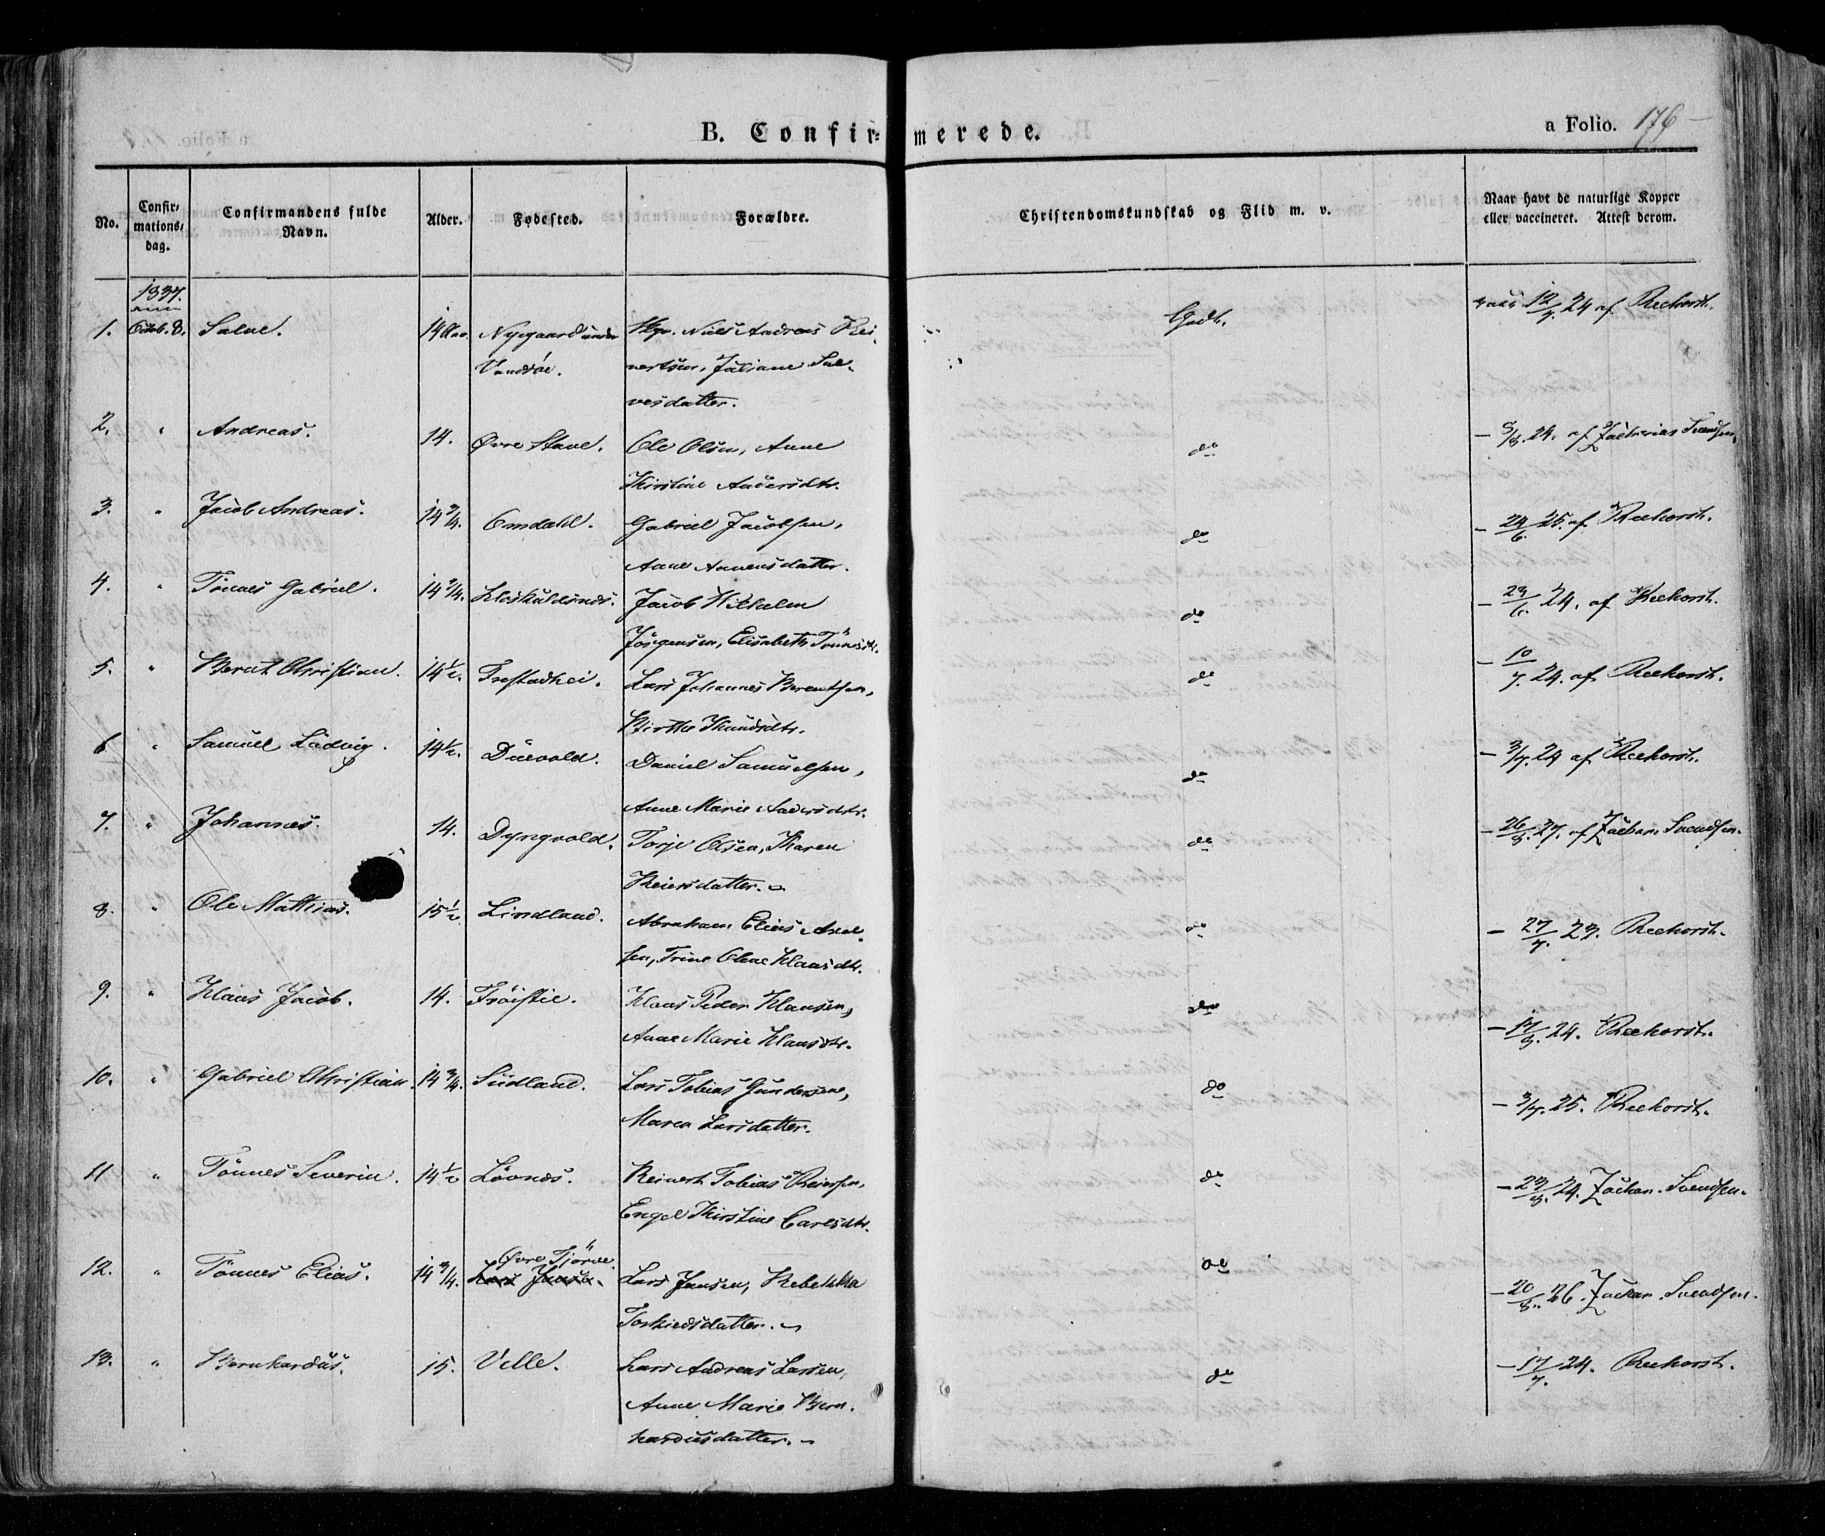 B. Confirmerede.
a Folio. 176
No.
Confirmations-dag.
Confirmandens fulde Navn.
Alder.
Fødested.
Forældre.
Christendomskundskab og Flid m. v.
Naar havt de naturlige Kopper
eller vaccineret. Attest derom.
1837.
1. Octob. 8. Salve. 14 Aar. Nygaard under Niels Andreas Rei- Godt. vacc. 12/7 24 af Reehorst.
Vandsøe. nertsen, Juliane Sal-
vesdatter.
2. " Andreas. 14. Øvre Stave. Ole Olsen, Anne do 5/8. 24. af Zacharias Svendsen
Kirstine Andersdtr.
3. " Jacob Andreas. 14 3/4. Omdahl. Gabriel Jacobsen, do – 24/6. 25. af Reehorst.
Anne Aanensdatter.
4. " Tönnes Gabriel. 14 3/4. Jacob Wilhelm do – 29/6. 24. af Reehorst.
Jörgensen, Elisabeth Tönnesdtr.
5. " Bernt Christian. 14 1/2. Frestadhei. Lars Johannes Berentsen, do – 10/7. 24. af Reehorst.
Birthe Knudsdtr.
6 " Samuel Ludvig. 14 1/2. Duevold. Daniel Samuelsen, do – 3/7. 24 af Reehorst.
Anne Marie Andersdtr.
7. " Johannes. 14. Dyngvold. Torje Olsen, Karen do – 26/8. 27. af Zachar. Svendsen.
Reiersdatter.
8. " Ole Mathias. 15 1/2 Lindland. Abraham Elias Axel- do – 27/7. 23. Reehorst.
sen, Trine Olene Klausdtr.
9. " Klaus Jacob. 14. Fröistie. Klaus Peder Klausen, do – 17/8. 24. Reehorst.
Anne Marie Klausdtr.
10. " Gabriel Christian. 14 3/4. Sudland. Lars Tobias Gundersen, do – 3/7. 25. Reehorst.
Maren Larsdatter.
11 " Tönnes Severin. 14 1/2 Lövnes. Reinert Tobias Reiersen, do – 23/8. 24. Zachar. Svendsen.
Engel Kirstine Carlsdtr.
Øvre Tjörve
12. " Tönnes Elias. 14 3/4. Lars Jansen. Lars Jansen, Rebekka do – 20/8. 26. Zachar. Svendsen.
Torkieldsdatter.
13. " Bernhardus. 15. Velle. Lars Andreas Larsen, do – 17/7. 24. Reehorst.
Anne Marie Bern-
hardusdatter.